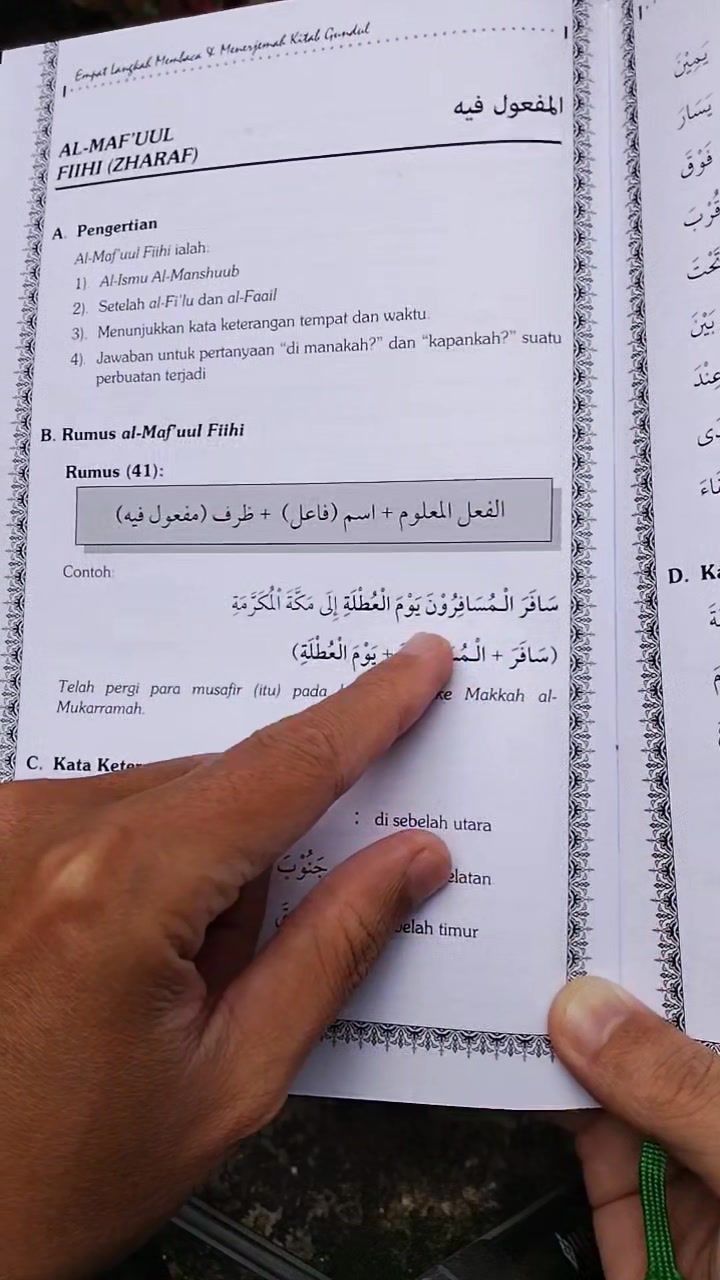 Empat Langkah Membaca & Menerjemah Kitab Gundul
المفعول فيه
AL-MAF'UUL
FIIHI (ZHARAF)
A. Pengertian
Al-Maf'uul Fiihi ialah:
1) Al-Ismu Al-Manshuub
2). Setelah al-Fi'lu dan al-Faail
3). Menunjukkan kata keterangan tempat dan waktu.
4). Jawaban untuk pertanyaan "di manakah?" dan "kapankah?" suatu
perbuatan terjadi
B. Rumus al-Maf'uul Fiihi
Rumus (41):
الفعل المعلوم + اسم (فاعل) + ظرف (مفعول فيه)
Contoh:
سَافَرَ الْمُسَافِرُوْنَ يَوْمَ الْعُطْلَةِ إِلَى مَكَّةَ الْمُكَرَّمَةِ
(سَافَرَ + + يَوْمَ الْعُطْلَةِ)
Telah pergi para musafir (itu) pada ke Makkah al-
Mukarramah.
C. Kata
: di sebelah utara
جَنُوْبَ
timur
يَمِيْنَ
يَسَارَ
فَوْقَ
قُرْبَ
تَحْتَ
بَيْنَ
D.